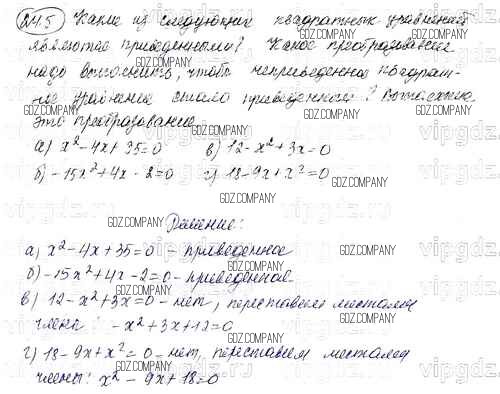 24.5 Какие из следующих квадратных уравнений
являются приведенными? Какое преобразование
надо выполнить, чтобы неприведенное квадрат-
ное уравнение стало приведенным? Выполните
это преобразование.
GDZ.COMPANY
а) x² - 4x + 35 = 0 в) 12 - x² + 3x = 0
GDZ.COMPANY
б) -15x² + 4x - 2 = 0 г) 18 - 9x + x² = 0
GDZ.COMPANY
Решение:
а) x² - 4x + 35 = 0 - приведенное
б) -15x² + 4x - 2 = 0 - приведенное.
в) 12 - x² + 3x = 0 - нет, переставим местами
члены: -x² + 3x + 12 = 0
г) 18 - 9x + x² = 0 - нет, переставим местами
члены: x² - 9x + 18 = 0